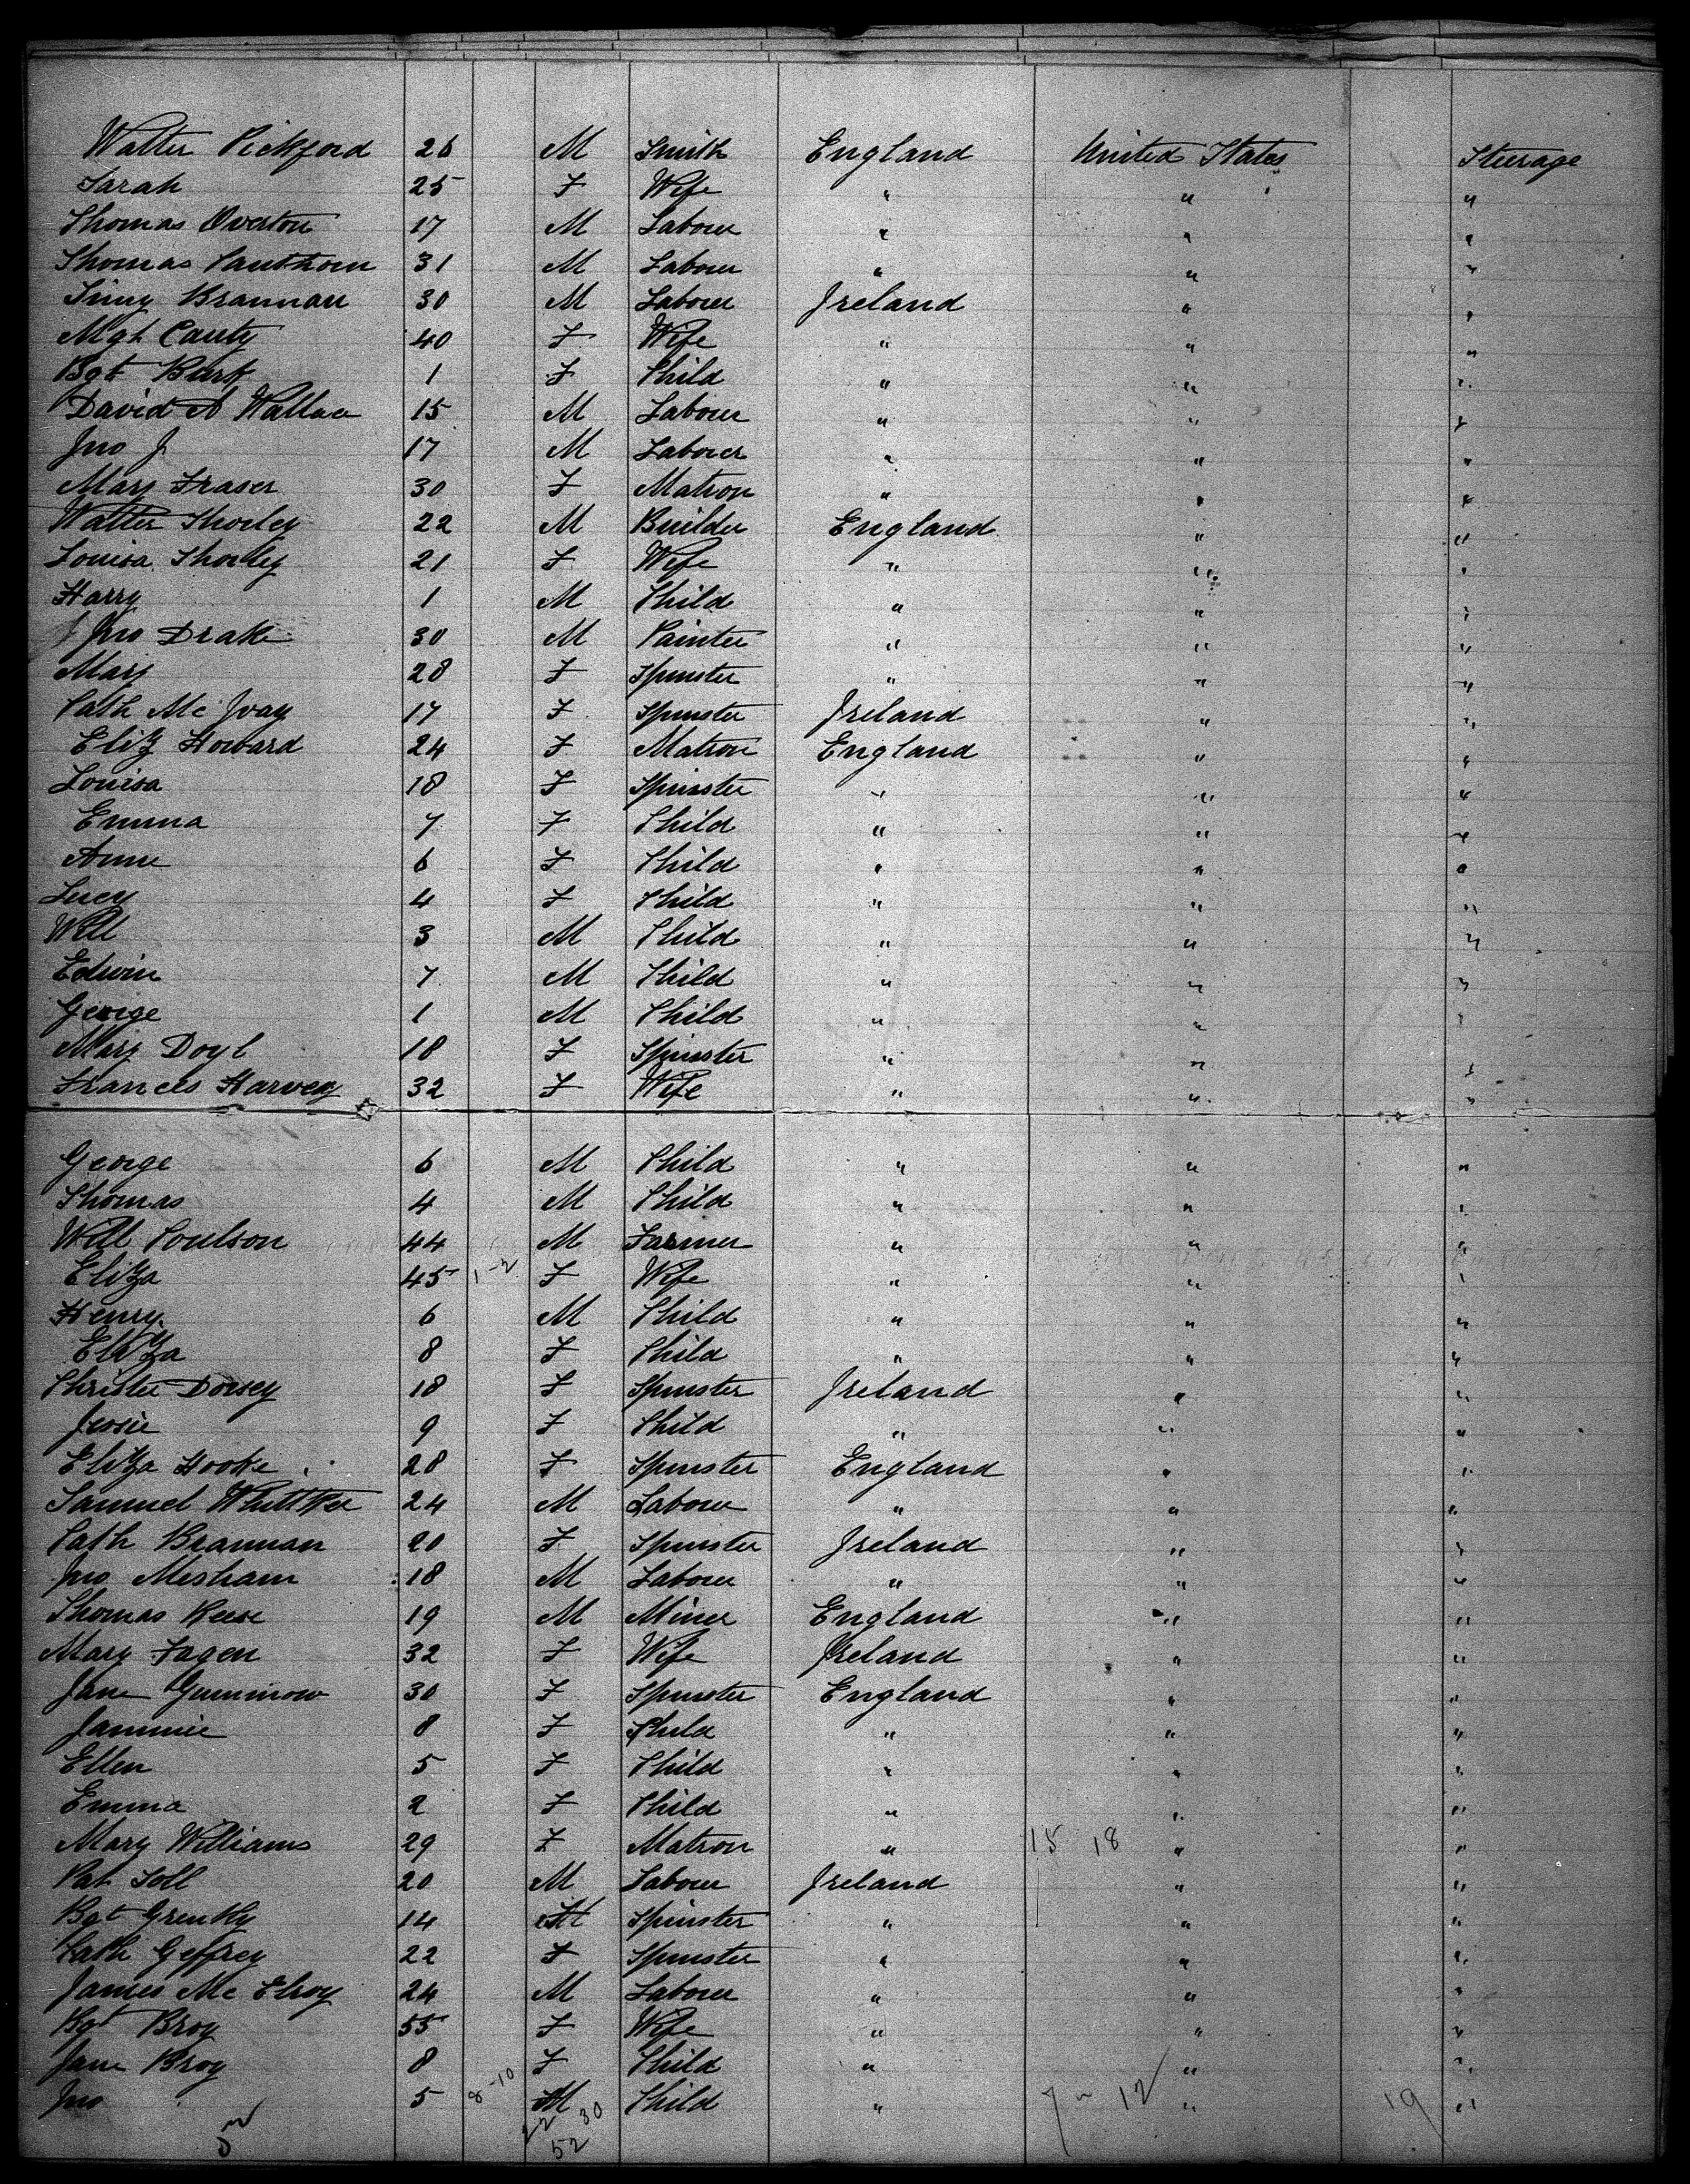 Walter Pickford 26 M Smith England United States Steerage
Sarah 25 F Wife " " "
Thomas Overton 17 M Labour " " "
Thomas 31 M Labour " " "
Brannan 30 M Labour Ireland " "
Mgt Canty 40 F Wife " " "
Bgt Burk 1 F Child " " "
David A Wallace 15 M Labour " " "
Jno J 17 M Labour " " "
Mary Fraser 30 F Matron " " "
Walter Thorley 22 M Builder England " "
Louisa Thorley 21 F Wife " " "
Harry 1 M Child " " "
Jno Drake 30 M Painter " " "
Mary 28 F Spinster " " "
Cath Mc 17 F Spinster Ireland " "
Eliz Howard 24 F Matron England " "
Louisa 18 F Spinster " " "
Emma 7 F Child " " "
Anne 6 F Child " " "
Lucy 4 F Child " " "
Will 3 M Child " " "
Edwin 7 M Child " " "
George 1 M Child " " "
Mary Doyl 18 F Spinster " " "
Frances Harvey 32 F Wife " " "
George 6 M Child " " "
Thomas 4 M Child " " "
Will Poulson 44 M Farmer " " "
Eliza 45 1-2 F Wife " " "
Henry 6 M Child " " "
Eliza 8 F Child " " "
Christie Dorsey 18 F Spinster Ireland " "
Jessie 9 F Child " " "
Eliza Hooke 28 F Spinster England " "
Samuel Whittker 24 M Labour " " "
Cath Brannan 20 F Spinster Ireland " "
Jno Mesham 18 M Labour " " "
Thomas Reese 19 M Miner England " "
Mary Fagen 32 F Wife Ireland " "
Jane Gummow 30 F Spinster England " "
Jammie 8 F Child " " "
Ellen 5 F Child " " "
Emma 2 F Child " " "
Mary Williams 29 F Matron " 15 18 " "
Pat Toll 20 M Labour Ireland " "
Bgt 14 Spinster " " "
Cath Geffrey 22 F Spinster " " "
James Mc Elroy 24 M Labour " " "
Bgt Broy 55 F Wife " " "
Jane Broy 8 F Child " " "
Jno 5 8-10 M Child " 7 12 " 19 "
22 30
52